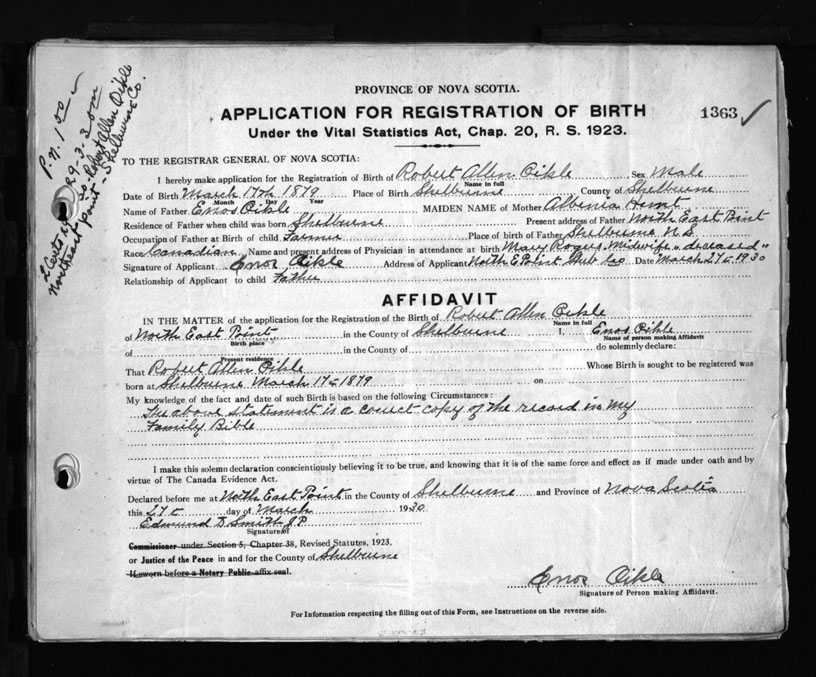 PROVINCE OF NOVA SCOTIA.
APPLICATION FOR REGISTRATION OF BIRTH
1363
Under the Vital Statistics Act, Chap. 20, R. S. 1923.
P.N. 1 00
29-3-30
Robert Allen Oikle
Northeast Point - Shelburne Co.
TO THE REGISTRAR GENERAL OF NOVA SCOTIA:
I hereby make application for the Registration of Birth of Robert Allen Oikle Sex Male
Name in full
Date of Birth March 17th 1879 Place of Birth Shelburne County of Shelburne
Month Day Year
Name of Father Enos Oikle MAIDEN NAME of Mother Albenia
Residence of Father when child was born Shelburne Present address of Father North East Point
Occupation of Father at Birth of child Farmer Place of birth of Father Shelburne N.S.
Race Canadian Name and present address of Physician in attendance at birth Mary Midwife "deceased"
Signature of Applicant Enos Oikle Address of Applicant North E Point Shelb Co Date March 27 1930
Relationship of Applicant to child Father
AFFIDAVIT
IN THE MATTER of the application for the Registration of the Birth of Robert Allen Oikle
Name in full
of North East Point in the County of Shelburne I, Enos Oikle
Birth place Name of person making Affidavit
of in the County of do solemnly declare:
Present residence
That Robert Allen Oikle Whose Birth is sought to be registered was
born at Shelburne March 17 1879 on
My knowledge of the fact and date of such Birth is based on the following Circumstances:
The above statement is a correct copy of the record in my
Family Bible
I make this solemn declaration conscientiously believing it to be true, and knowing that it is of the same force and effect as if made under oath and by
virtue of The Canada Evidence Act.
Declared before me at North East Point in the County of Shelburne and Province of Nova Scotia
this 27 day of March 1930
Edmund D Smith J P
Signature of
Commissioner under Section 5, Chapter 38, Revised Statutes, 1923,
or Justice of the Peace in and for the County of Shelburne
If sworn before a Notary Public affix seal.
Enos Oikle
Signature of Person making Affidavit.
For Information respecting the filling out of this Form, see Instructions on the reverse side.